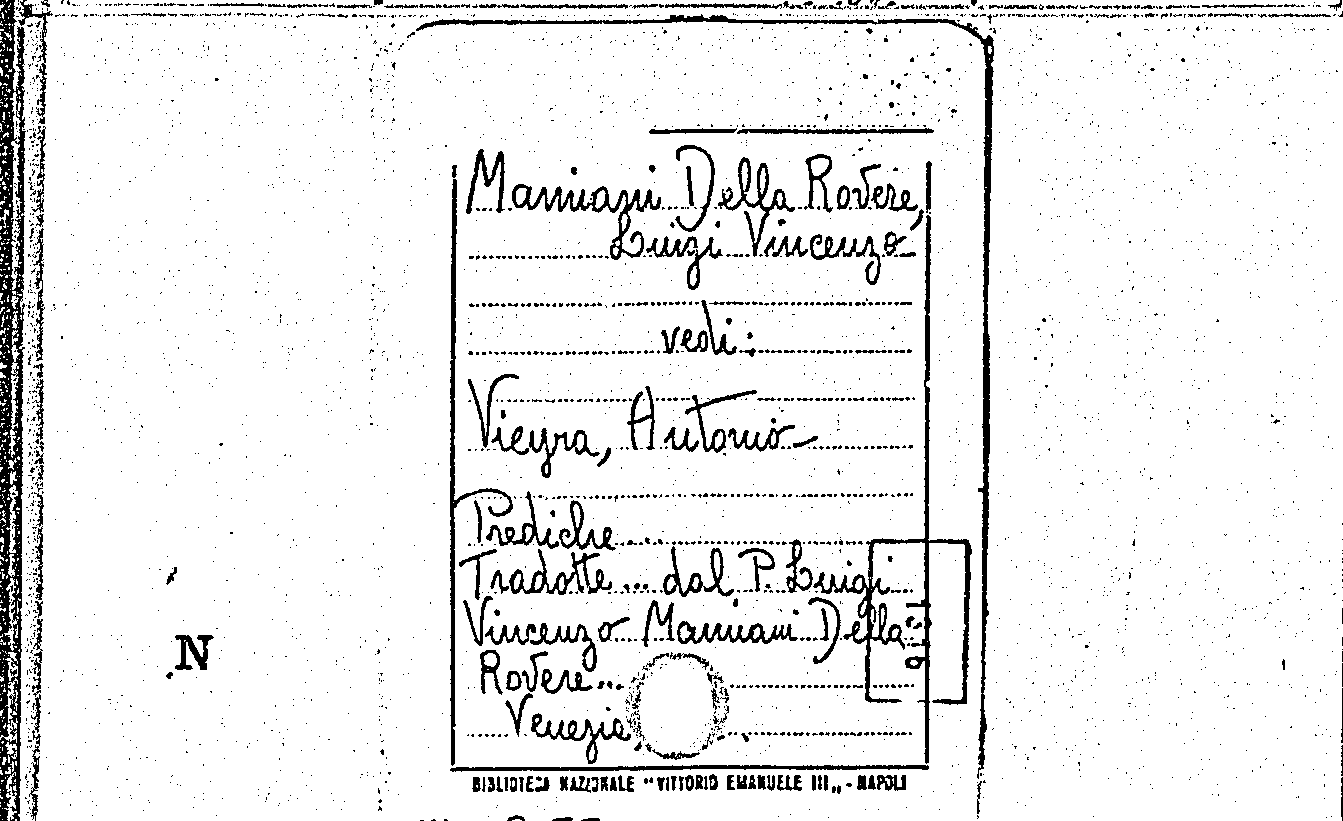 Mamiani Della Rovere,
Luigi Vincenzo
vedi:
Vieyra, Antonio
Prediche...
Tradotte... dal P. Luigi
Vincenzo Mamiani Della
Rovere...
Venezia,
N
BIBLIOTECA NAZIONALE "VITTORIO EMANUELE III„ - NAPOLI